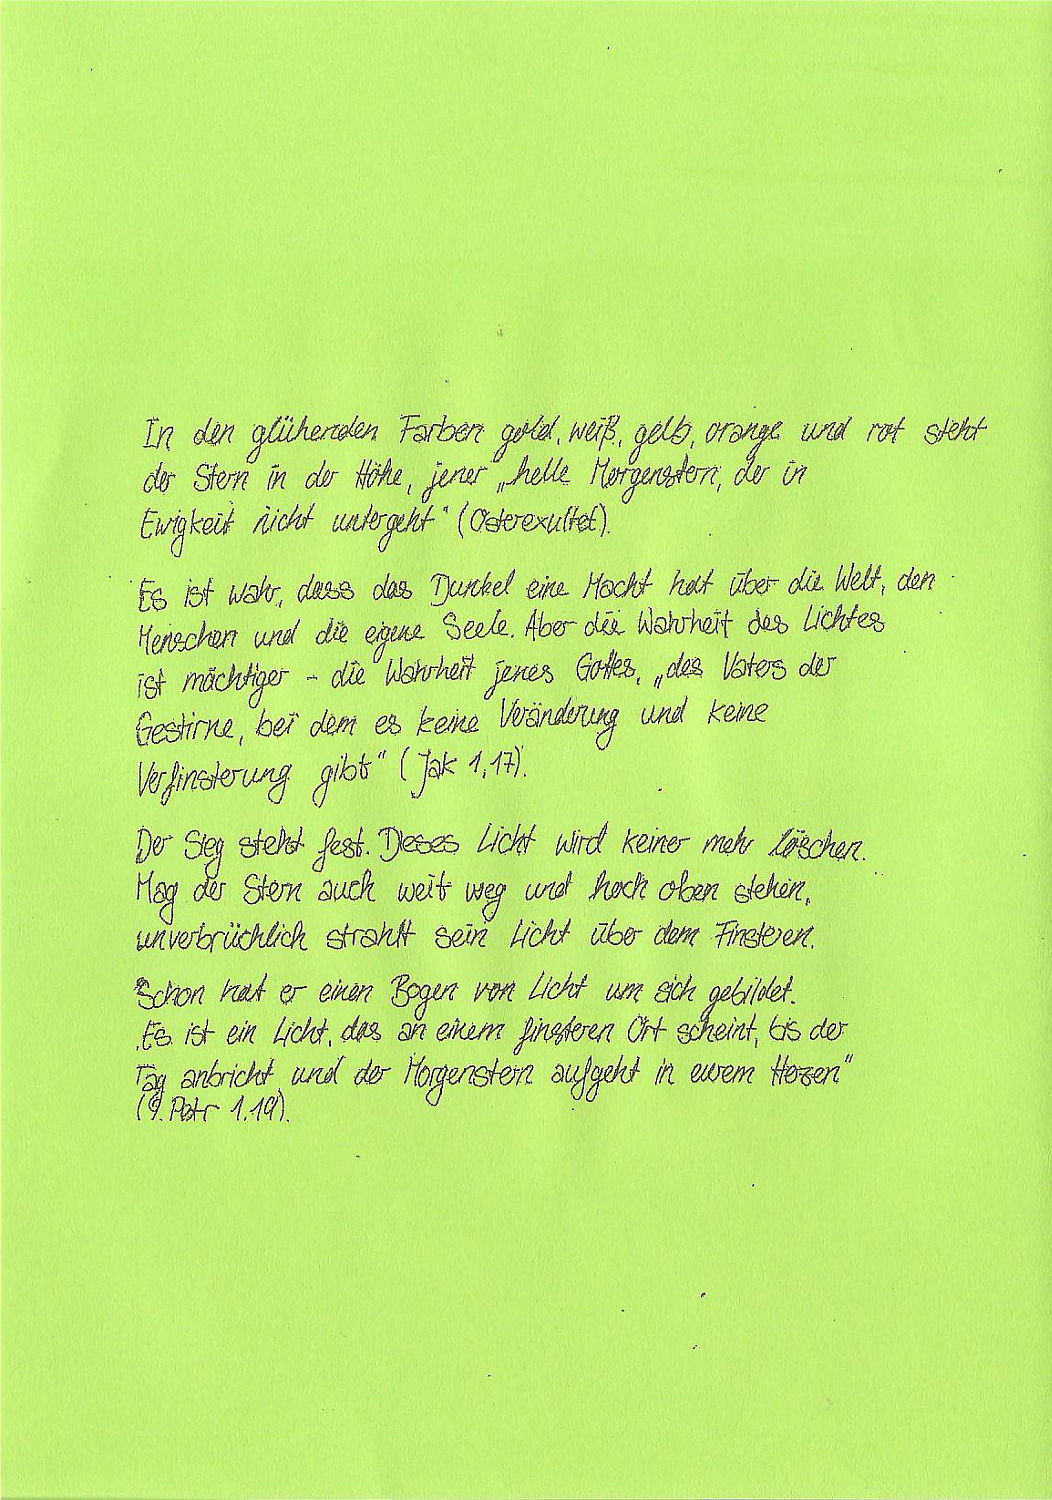 In den glühenden Farben gold, weiß, gelb, orange und rot steht
der Stern in der Höhe, jener „helle Morgenstern, der in
Ewigkeit nicht untergeht“ (Osterexultet).
Es ist wahr, dass das Dunkel eine Macht hat über die Welt, den
Menschen und die eigene Seele. Aber die Wahrheit des Lichtes
ist mächtiger - die Wahrheit jenes Gottes, „des Vaters der
Gestirne, bei dem es keine Veränderung und keine
Verfinsterung gibt“ (Jak 1,17).
Der Sieg steht fest. Dieses Licht wird keiner mehr löschen.
Mag der Stern auch weit weg und hoch oben stehen,
unverbrüchlich strahlt sein Licht über dem Finsteren.
Schon hat er einen Bogen von Licht um sich gebildet.
„Es ist ein Licht, das an einem finsteren Ort scheint, bis der
Tag anbricht und der Morgenstern aufgeht in eurem Herzen“
Petr 1.19).